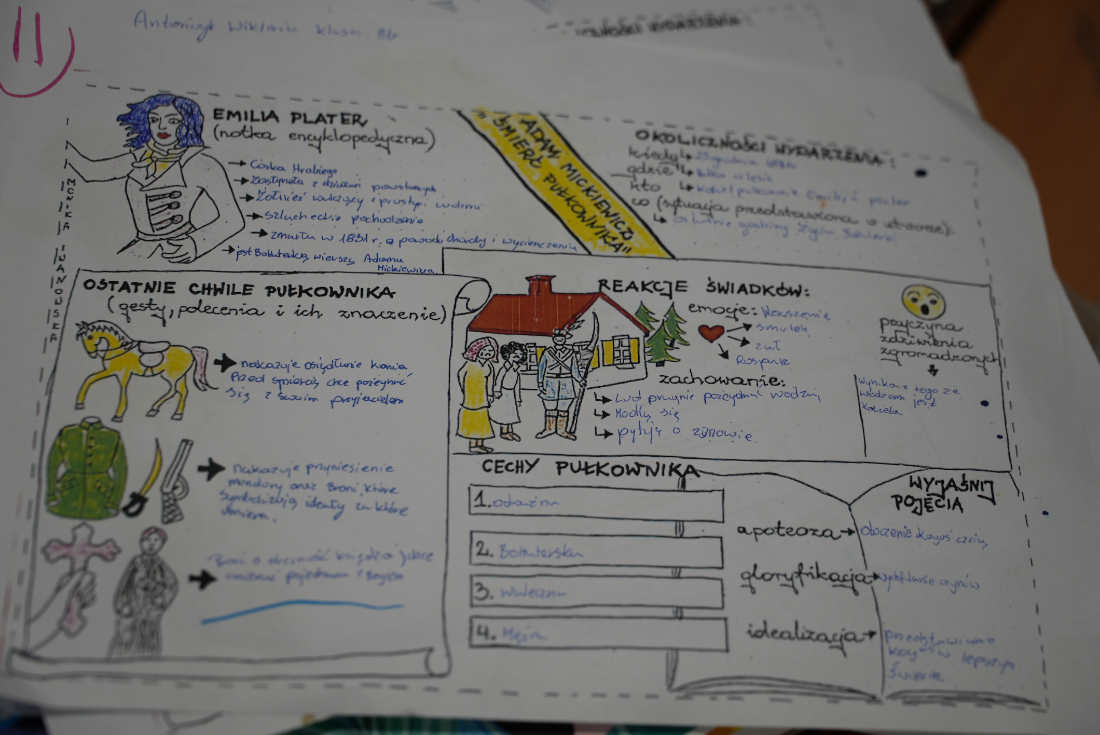 11
Antończyk Wiktoria klasa 8b
OKOLICZNOŚCI WYDARZENIA:
EMILIA PLATER
(notka encyklopedyczna)
→ Córka Hrabiego
→ Zasłynęła z działań powstańczych
→ Żołnierz walczący z prostymi ludźmi
→ szlacheckie pochodzenie
→ zmarła w 1831 r, z powodu choroby i wycieńczenia
→ jest Bohaterką wiersza Adama
Mickiewicza
MONIKA IWANOWSKA
ADAM MICKIEWICZ
"ŚMIERĆ PUŁKOWNIKA"
OKOLICZNOŚCI WYDARZENIA:
kiedy ↳ 23 grudnia
gdzie ↳ w lesie
kto ↳ Emilia plater
co (sytuacja przedstawiona w utworze):
↳ ostatnie godziny życia
OSTATNIE CHWILE PUŁKOWNIKA
(gesty, polecenia i ich znaczenie)
→ nakazuje osiodłanie konia
Przed śmiercią chce pożegnać
się z swoim przyjacielem
→ nakazuje przyniesienie
munduru oraz Broni, które
symbolizują ideały za które
umiera.
→ Prosi o obecność księdza
REAKCJE ŚWIADKÓW:
emocje: Wzruszenie
→ smutek
→ żal
→ Rozpacz
zachowanie:
↳ Lud pragnie pożegnać wodza
↳ Modlą się
↳ pytają o zdrowie
przyczyna
zdziwienia
zgromadzonych
Wynika z tego że
wodzem jest
kobieta
CECHY PUŁKOWNIKA
1. odważna
2. Bohaterska
3. waleczna
4. Mężna
WYJAŚNIJ
POJĘCIA
apoteoza → otoczenie kogoś czcią
gloryfikacja → wychwalanie czynów
idealizacja → przedstawianie
kogoś w lepszym
świetle